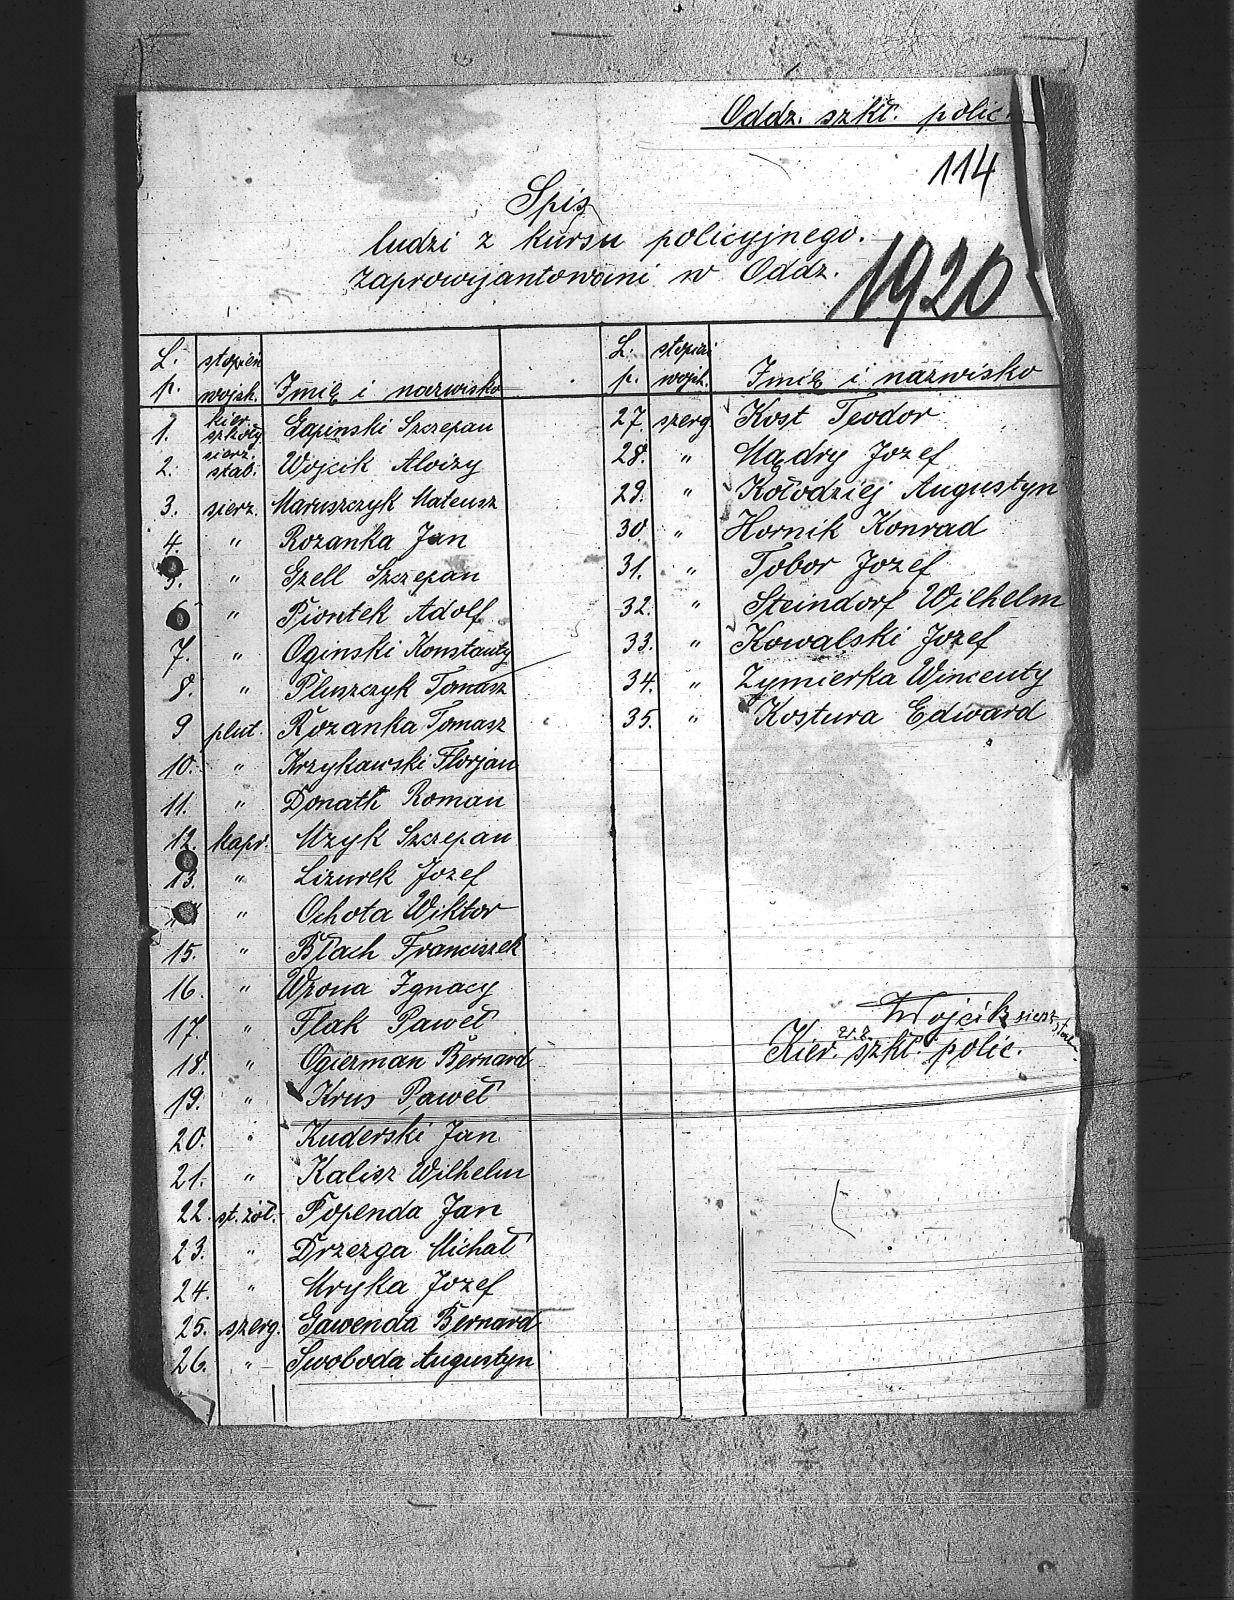 Oddz. szkł. polic.
114
Spis
ludzi z kursu policyjnego.
zaprowijantowani w Oddz.
1920
L. p. stopień wojsk. Imię i nazwisko
1. kier. szkoły Gapinski Szczepan
2. sierz. stab. Wojcik Aloizy
3. sierz. Maruszczyk Mateusz
4. " Rozanka Jan
5. " Gzell Szczepan
6 " Piontek Adolf
7. " Oginski Konstanty
8. " Pluszczyk Tomasz
9 plut. Rozanka Tomasz
10. " Krzykawski Florjan
11. " Donath Roman
12. kapr. Mzyk Szczepan
13. " Lizurek Jozef
" Ochota Wiktor
15. " Błach Franciszek
16. " Wrona Ignacy
17. " Flak Paweł
18. " Ogierman Bernard
19. " Krus Paweł
20. " Kuderski Jan
21. " Kalisz Wilhelm
22. st. żoł. Popenda Jan
23. " Drzezga Michał
24. " Mryka Jozef
25. szerg. Gawenda Bernard
26. " Swoboda Augustyn
L. p. stopień wojsk. Imię i nazwisko
27. szerg Kost Teodor
28. " Mądry Jozef
29. " Kołodziej Augustyn
30. " Hornik Konrad
31. " Tobor Jozef
32. " Steindorf Wilhelm
33. " Kowalski Jozef
34. " Zymierka Wincenty
35. " Kostura Edward
Wojcik sierz.
Kier. szkł. polic.